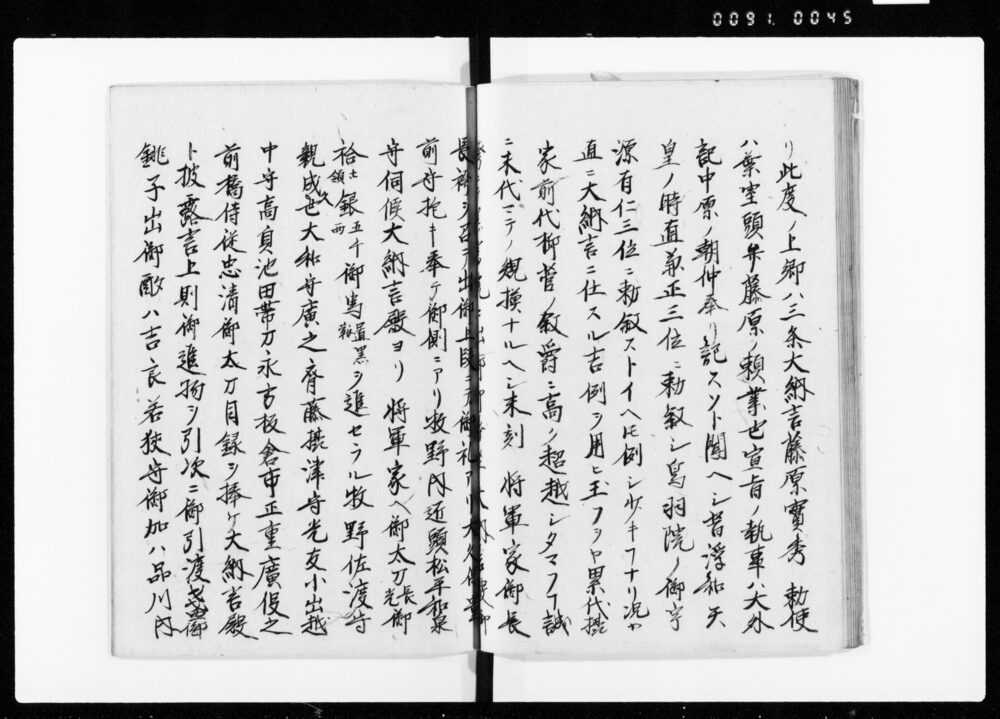 0091.0045
リ此度ノ上卿ハ三条大納言藤原實秀 勅使
ハ葉室頭弁藤原ノ頼業也宣旨ノ執事ハ大外
記中原ノ朝仲奉リ記スソト聞ヘシ昔淳和天
皇ノ時直ニ正三位ニ勅叙シ鳥羽院ノ御宇
源有仁三位ニ勅叙ストイヘ𪜈例シ少キヿナリ況ヤ
直ニ大納言ニ仕スル吉例ヲ用ヒ玉フヲヤ累代摂
家前代柳営ノ叙爵ニ高ノ超越シタマフヿ誠
ニ末代マテノ規摸ナルヘシ未刻 将軍家御長
長袴ヲ召テ出御上段ニテ御礼アリ
前守抱キ奉テ御側ニアリ牧野内匠頭松平和泉
守伺候大納言殿ヨリ 将軍家ヘ御太刀長光御
袷十領銀五千両御馬置黒鞍ヲ進セラル牧野佐渡守
親成也大和守廣之齊藤摂津守光友小出越
中守高貞池田帯刀永方板倉市正重廣役之
前橋侍従忠清御太刀目録ヲ捧ケ大納言殿
ト披露吉上則御進物ヲ引次ニ御引渡シ御
銚子出御酌ハ吉良若狭守御加ハ品川内